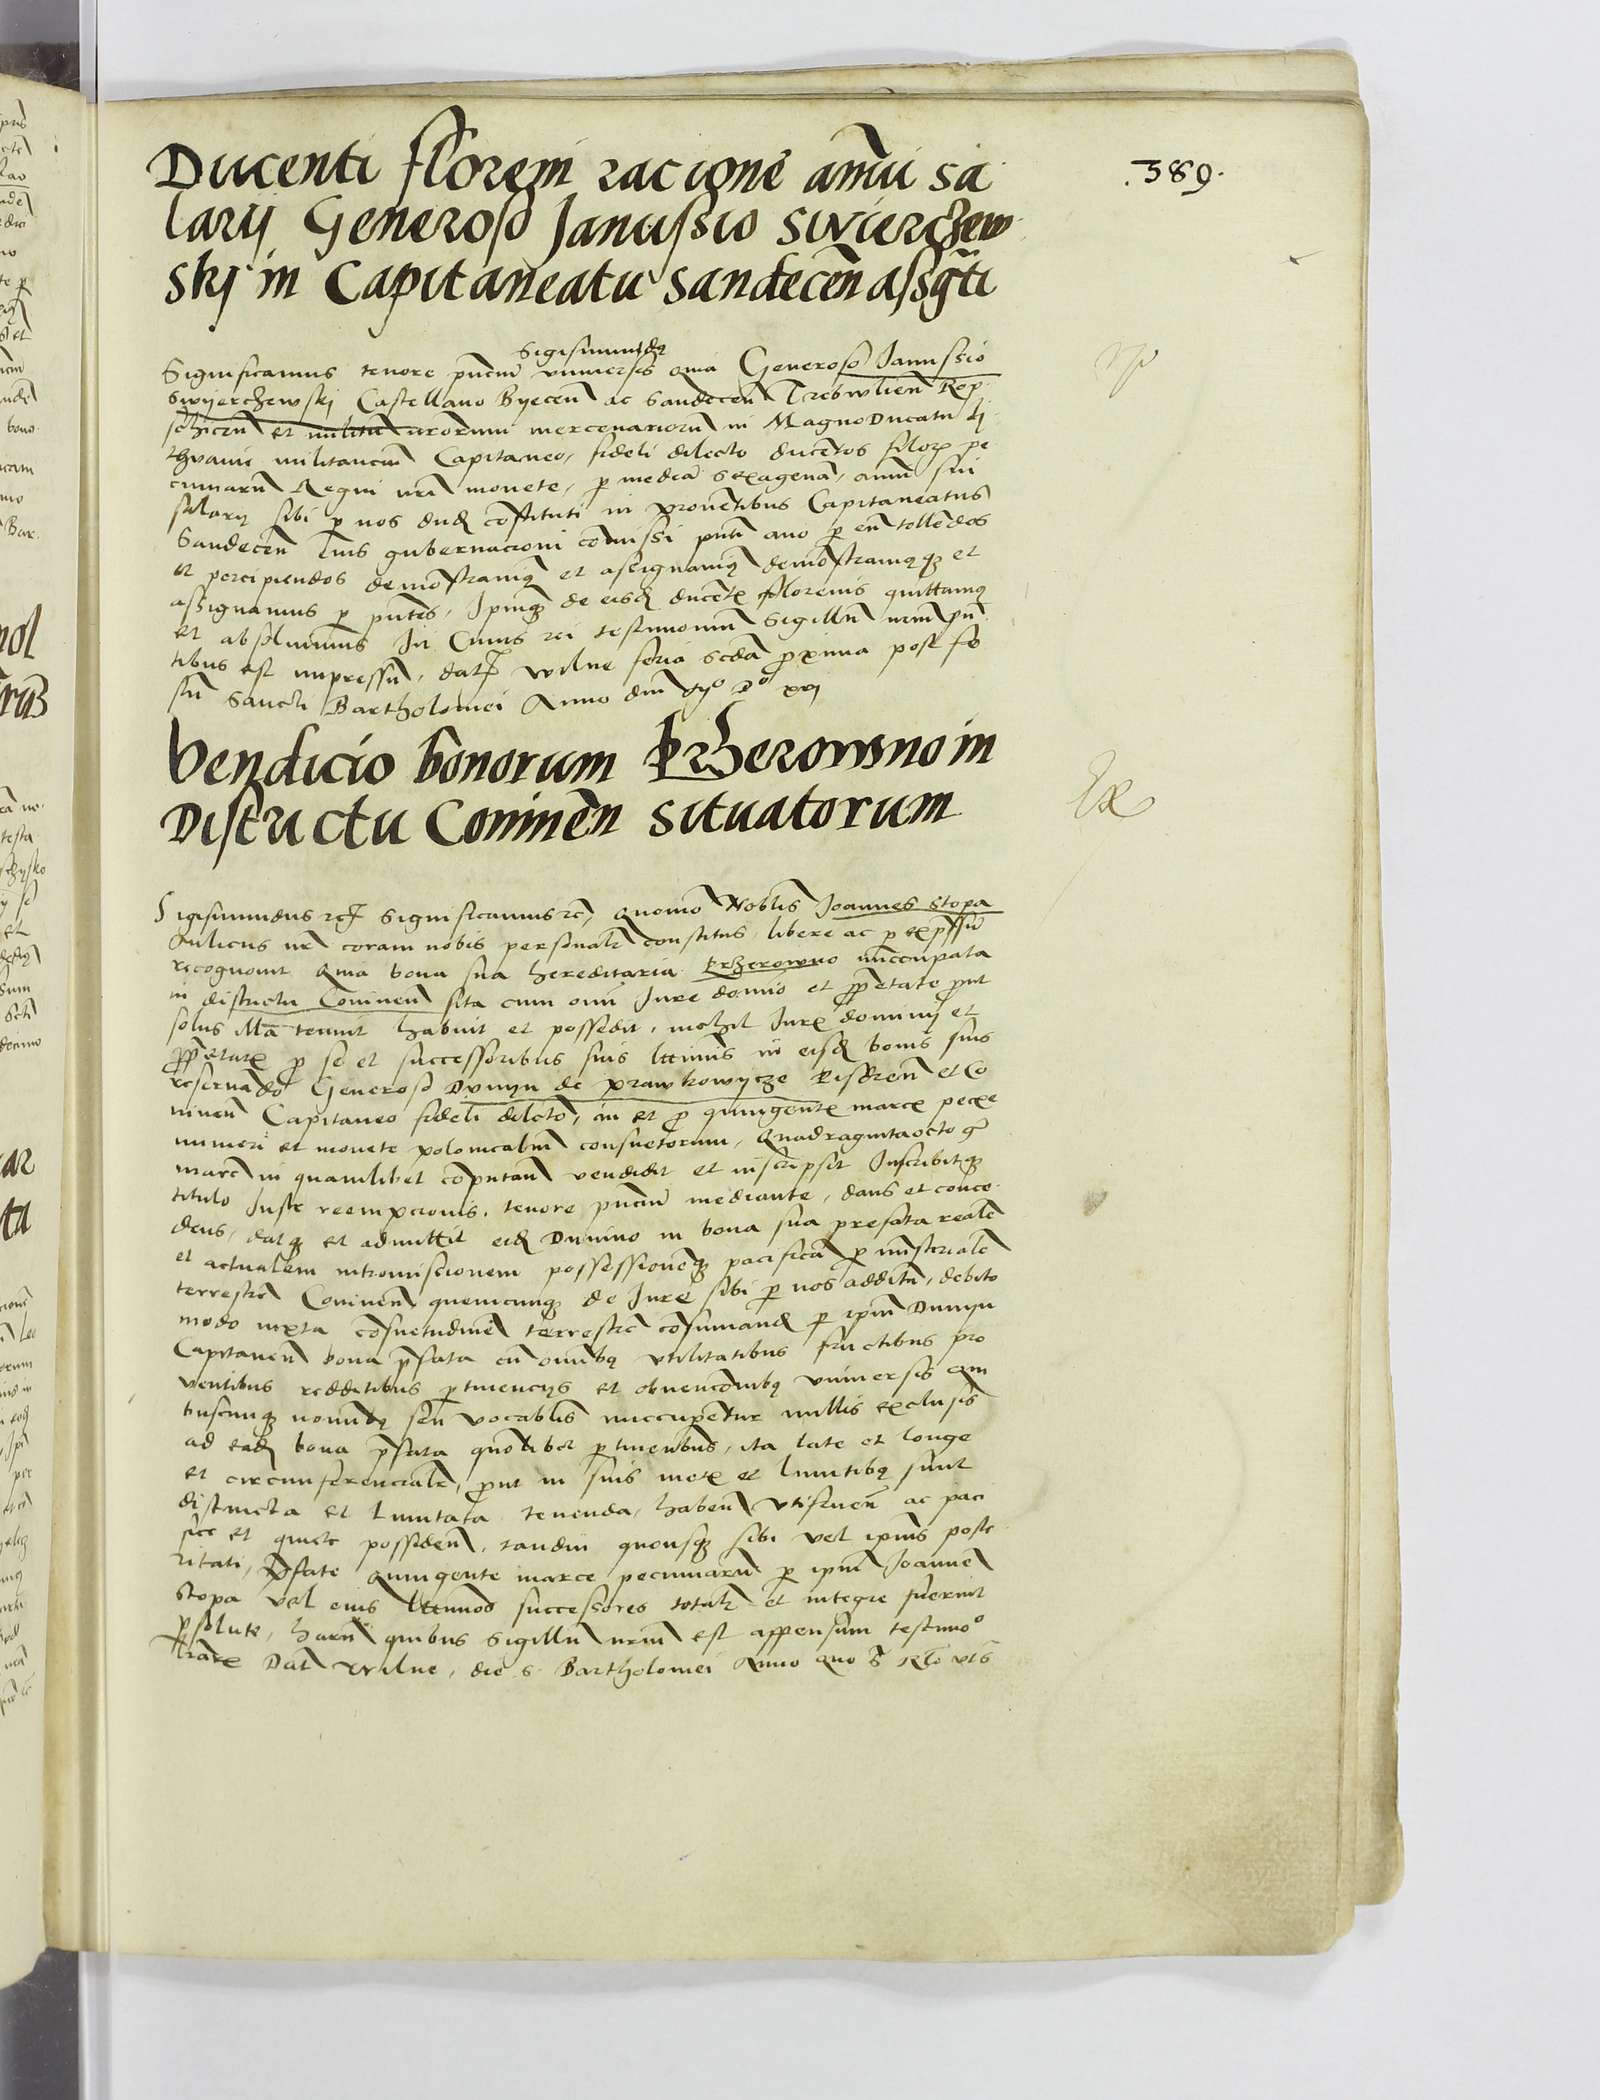 .389.
Ducenti floreni racione annui sa
larij Generoso Janussio Swierczew
skj in Capitaneatu Sandecen assgti
Sigismundus
Significamus tenore pncium universis quia Generoso Janussio
Swyerczewskj Castellano Byecen ac Sandecen Trebwlien Rop
schicen et militum nrorum mercenariorum in Magno Ducatu Li
thvanie militancium Capitaneo, fideli dilecto ducentos floren pe
cuniarum Regni nri monete, per mediam sexagenam, annui sui
salarij sibi per nos dudum constituti in proventibus Capitaneatus
Sandecen eius gubernacioni comissi pnti anno per eum tollendos
et percipiendos demonstravimus et assignavimus demonstramusque et
assignamus per pntes, Ipmque de eisdem ducentis florenis quittamus
et absolvimus In Cuius rei testimonium Sigillum nrm pn
tibus est impressum, dat Wilne feria scda proxima post fe
stum Sancti Bartholomei Anno dni Mo Do xvj
Vendicio bonorum Przerowno in
Districtu Coninen situatorum
Ex
Sigismundus etc Significamus etc, quomodo Noblis Joannes Stopa
Aulicus nr coram nobis personalr constitus, libere ac per expssum
recognovit Quia bona sua hereditaria Przerowno nuncupata
in districtu Coninen sita cum omi Jure domio et proprietate prout
solus illa tenuit habuit et possedit, nichil Juris dominij et
proprietatis pro se et successoribus suis lttimis in eisdem bonis suis
reservando Generoso Dunyn de Prawkowycze Pisdren et Co
ninen Capitaneo fideli dilecto, in et pro quingentis marcis pecie
numeri et monete polonicalium consuetorum, Quadragintaocto gr
marc in quamlibet computan vendidit et inscripsit Inscribitque
titulo Juste reempcionis, tenore pncium mediante, dans et conce
dens, datque et admittit eidem Dunino in bona sua prefata realem
et actualem intromissionem possessionemque pacificam per ministerialem
terrestrem Coninen, quemcunque de Jure sibi per nos additum, debito
modo iuxta consuetudinem terrestrem consumand per ipm Dunyn
Capitaneum bona prefata cum omnibus utilitatibus fructibus pro
ventibus redditibus pertinencijs et obvencionibus universis quin
buscunque nominibus seu vocablis nuccupentur nullis exclusis
ad eadem bona prefata quomolibet pertinentibus, ita late et longe
et circumferencialr, prout in suis metis et limitibus sunt
distincta et limitata tenenda, haben utifruen ac paci
fice et quiete possiden, tamdiu quousque sibi vel ipius poste
ritati, prefate quingente marce pecuniarum per ipm Joannem
Stopa vel eius lttimos successores totalr et integre fuerint
persolute, harum quibus Sigillum nrm est appensum testimo
liarum Dat Wilne, die S. Bartholomei Anno quo s